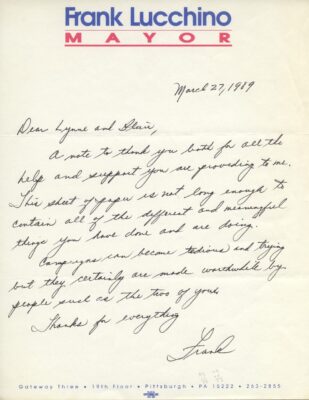 Frank Lucchino
MAYOR
March 27, 1989
Dear Lynne and Blair,
A note to thank you both for all the
help and support you are providing to me.
This sheet of paper is not long enough to
contain all of the different and meaningful
things you have done and are doing.
Campaigns can become tedious and trying
but they certainly are made worthwhile by
people such as the two of you.
Thanks for everything
Frank
Gateway Three • 19th Floor • Pittsburgh • PA 15222 • 263-2855